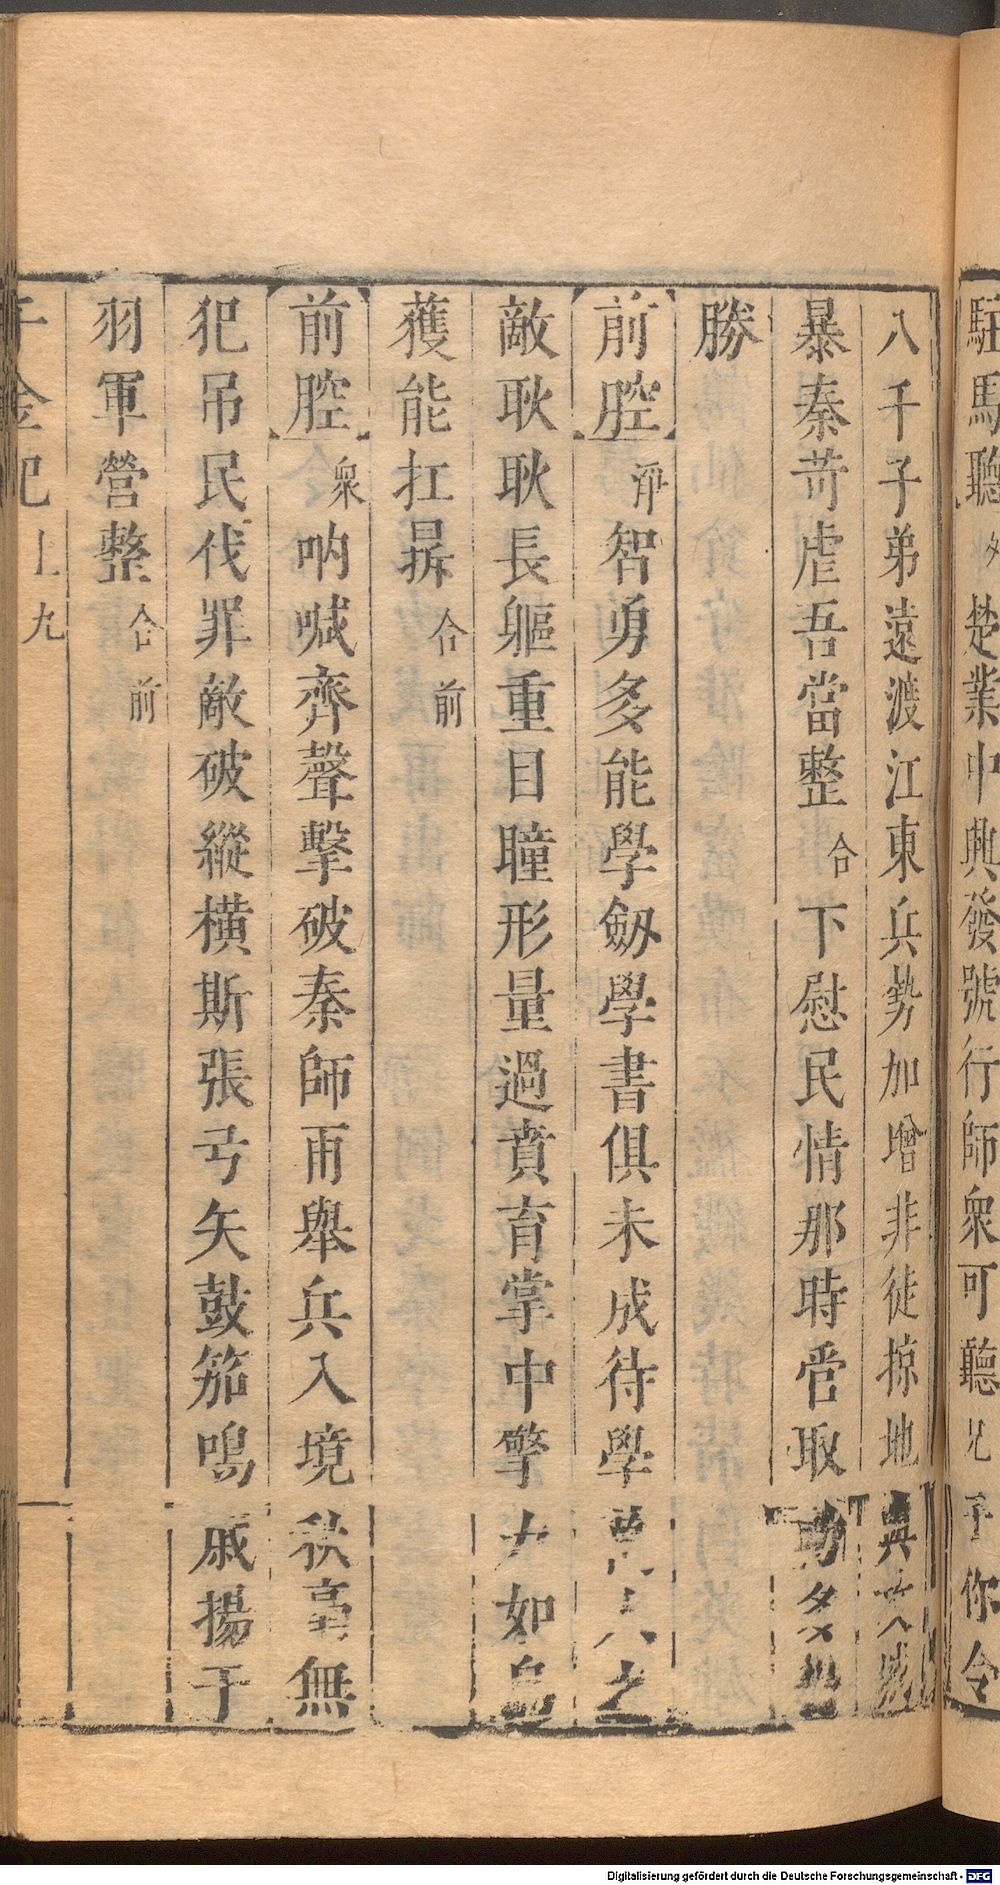 駐馬聽 楚業中興發號行師衆可聽 兄子你令
八千子弟遠渡江東兵勢加增非徒掠地與攻城
暴秦苛虐吾當整 合 下慰民情那時管取 多
勝
前腔 淨 智勇多能學劔學書俱未成待學萬人之
敵耿耿長軀重目瞳形量過賁育掌中擎力如
獲能扛鼎 合前
前腔 衆 吶喊齊聲擊破秦師雨舉兵入境秋毫無
犯吊民伐罪敵破縱橫斯張弓矢鼓笳鳴戚揚于
羽軍營整 合前
千金記 上 九
Digitalisierung gefördert durch die Deutsche Forschungsgemeinschaft - DFG